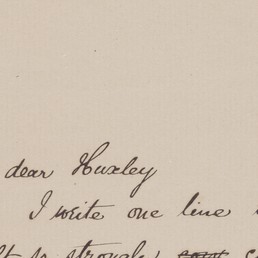 dear Huxley
I write one line
so strongly